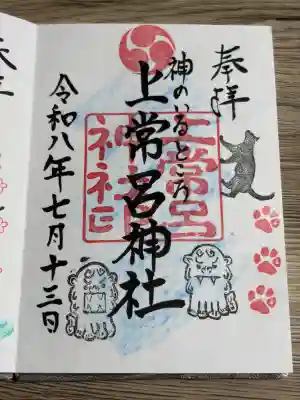 奉拝
神のいるところ
上常呂神社
上常呂
神社
令和八年七月十三日